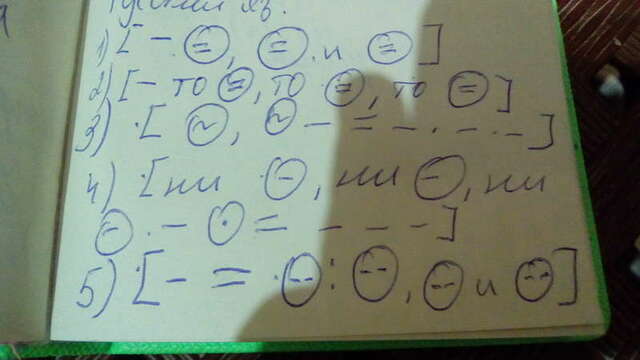 Русский яз.
1) [ – . (=), (=) . и (=) ]
2) [ – то (=), то (=), то (=) ]
3) . [ (~), (~) – = – . – . – ]
4) . [ ни . (–), ни (–), ни
(–) . – (.) = – – – ]
5) . [ – = . (--) : (--), (--) и (--) ]